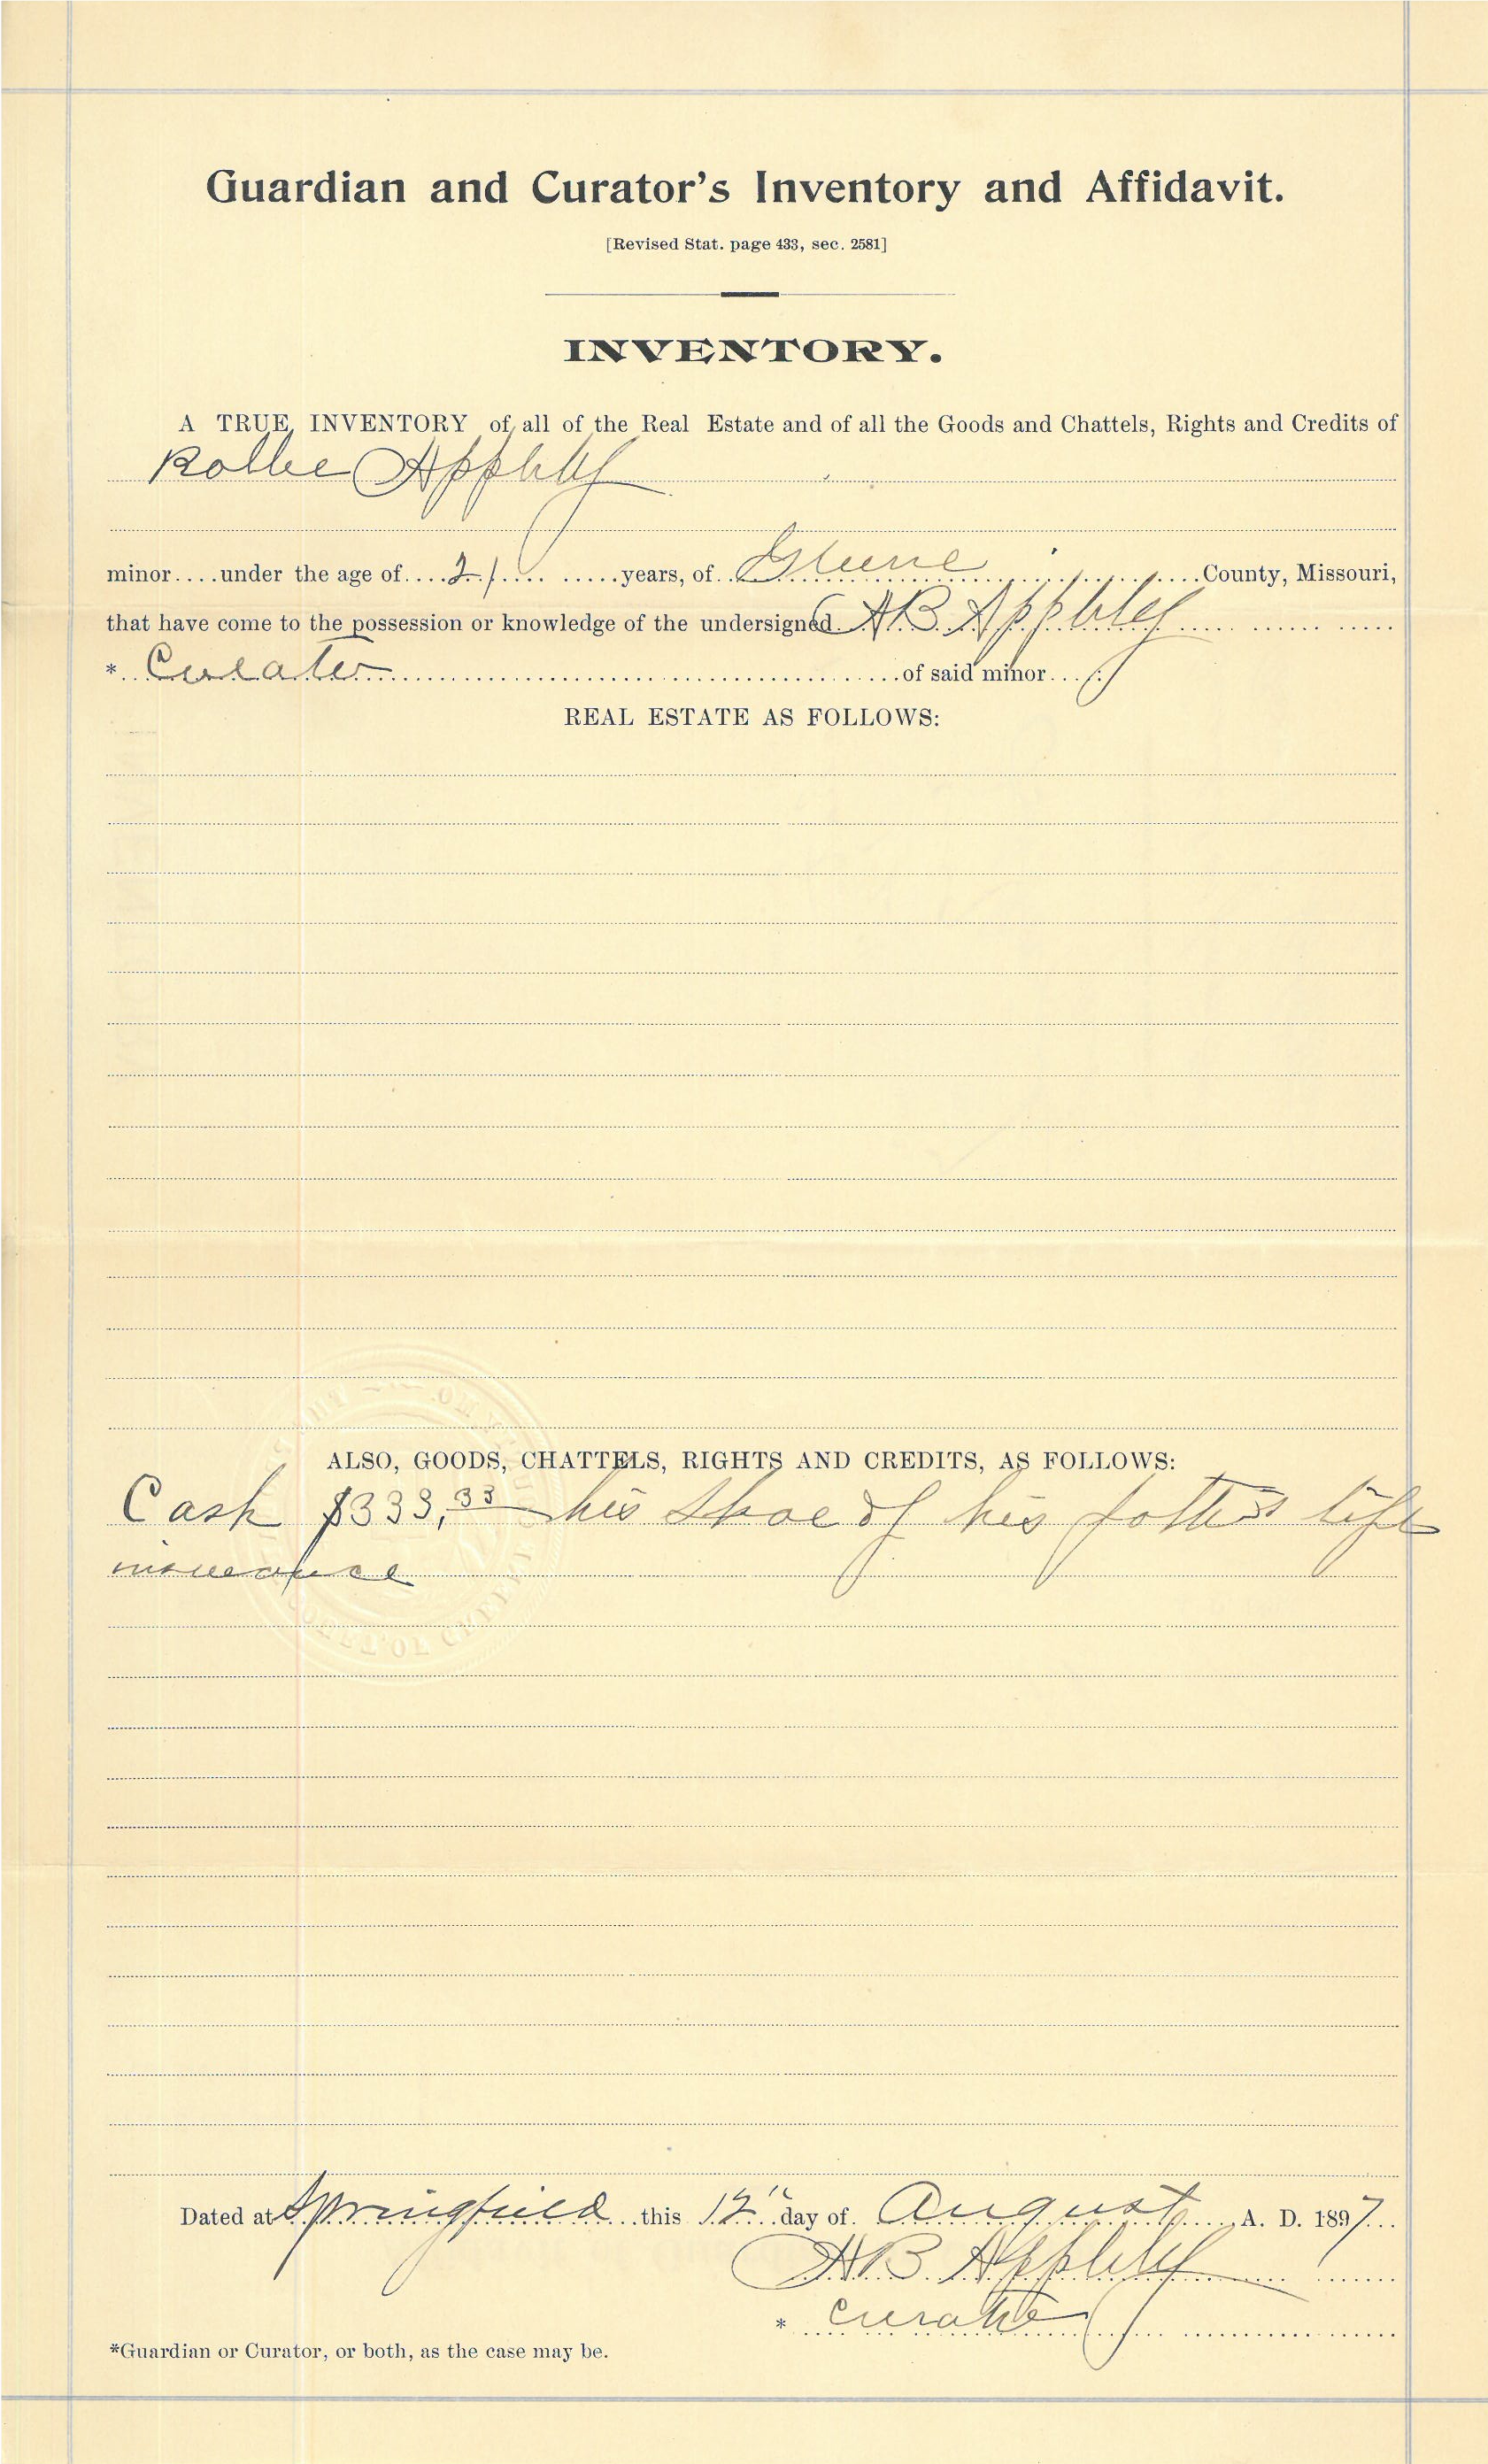 Guardian and Curator's Inventory and Affidavit.
[Revised Stat. page 433, sec. 2581]
INVENTORY.
A TRUE INVENTORY of all of the Real Estate and of all the Goods and Chattels, Rights and Credits of
Rollie Appleby
minor....under the age of....21.... .....years, of..Greene.....County, Missouri,
that have come to the possession or knowledge of the undersigned. A B Appleby
*..Curator.....of said minor....
REAL ESTATE AS FOLLOWS:
ALSO, GOODS, CHATTELS, RIGHTS AND CREDITS, AS FOLLOWS:
Cash $333.33 his Share of his fathers life
insurance
Dated at Springfield...this 12"..day of. August....A. D. 1897...
A B Appleby
* Curator
*Guardian or Curator, or both, as the case may be.